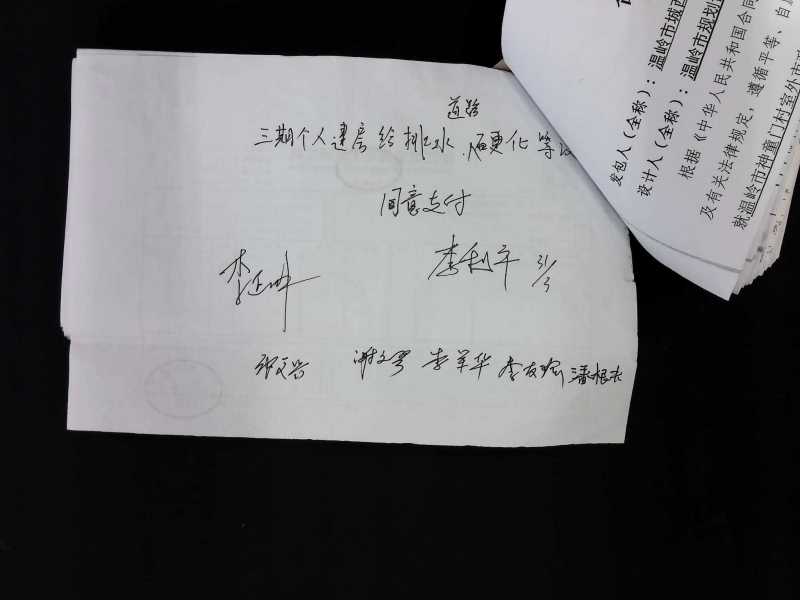 道路
三期个人建房给排水、硬化等
同意支付
李利平 31/3
李羊华 李友 潘根
发包人(全称):温岭市城西
设计人(全称):温岭市规划
根据《中华人民共和国合同
及有关法律规定,遵循平等、自
就温岭市神童门村室外市